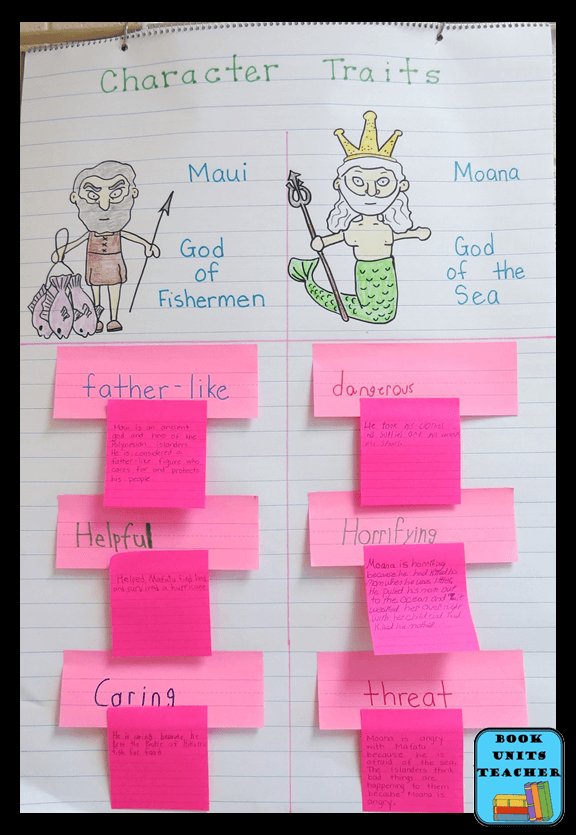 Character Traits
Maui
God
of
Fishermen
Moana
God
of the
Sea
father-like
Maui is an ancient
god and hero of the
Polynesian islanders.
He is considered a
father-like figure who
cares for and protects
his people.
Helpful
Helped Mafatu find land
and survive a hurricane
Caring
He is caring because he
food
dangerous
He
his
Horrifying
Moana is horrifying
because he had
mom when he was little.
He pulled his mom out
to the ocean and
her over night
with her child and
killed his mother.
threat
Moana is angry
with Mafatu
because he is
afraid of the sea.
The islanders think
bad things are
happening to them
because Moana is
angry.
BOOK
UNITS
TEACHER